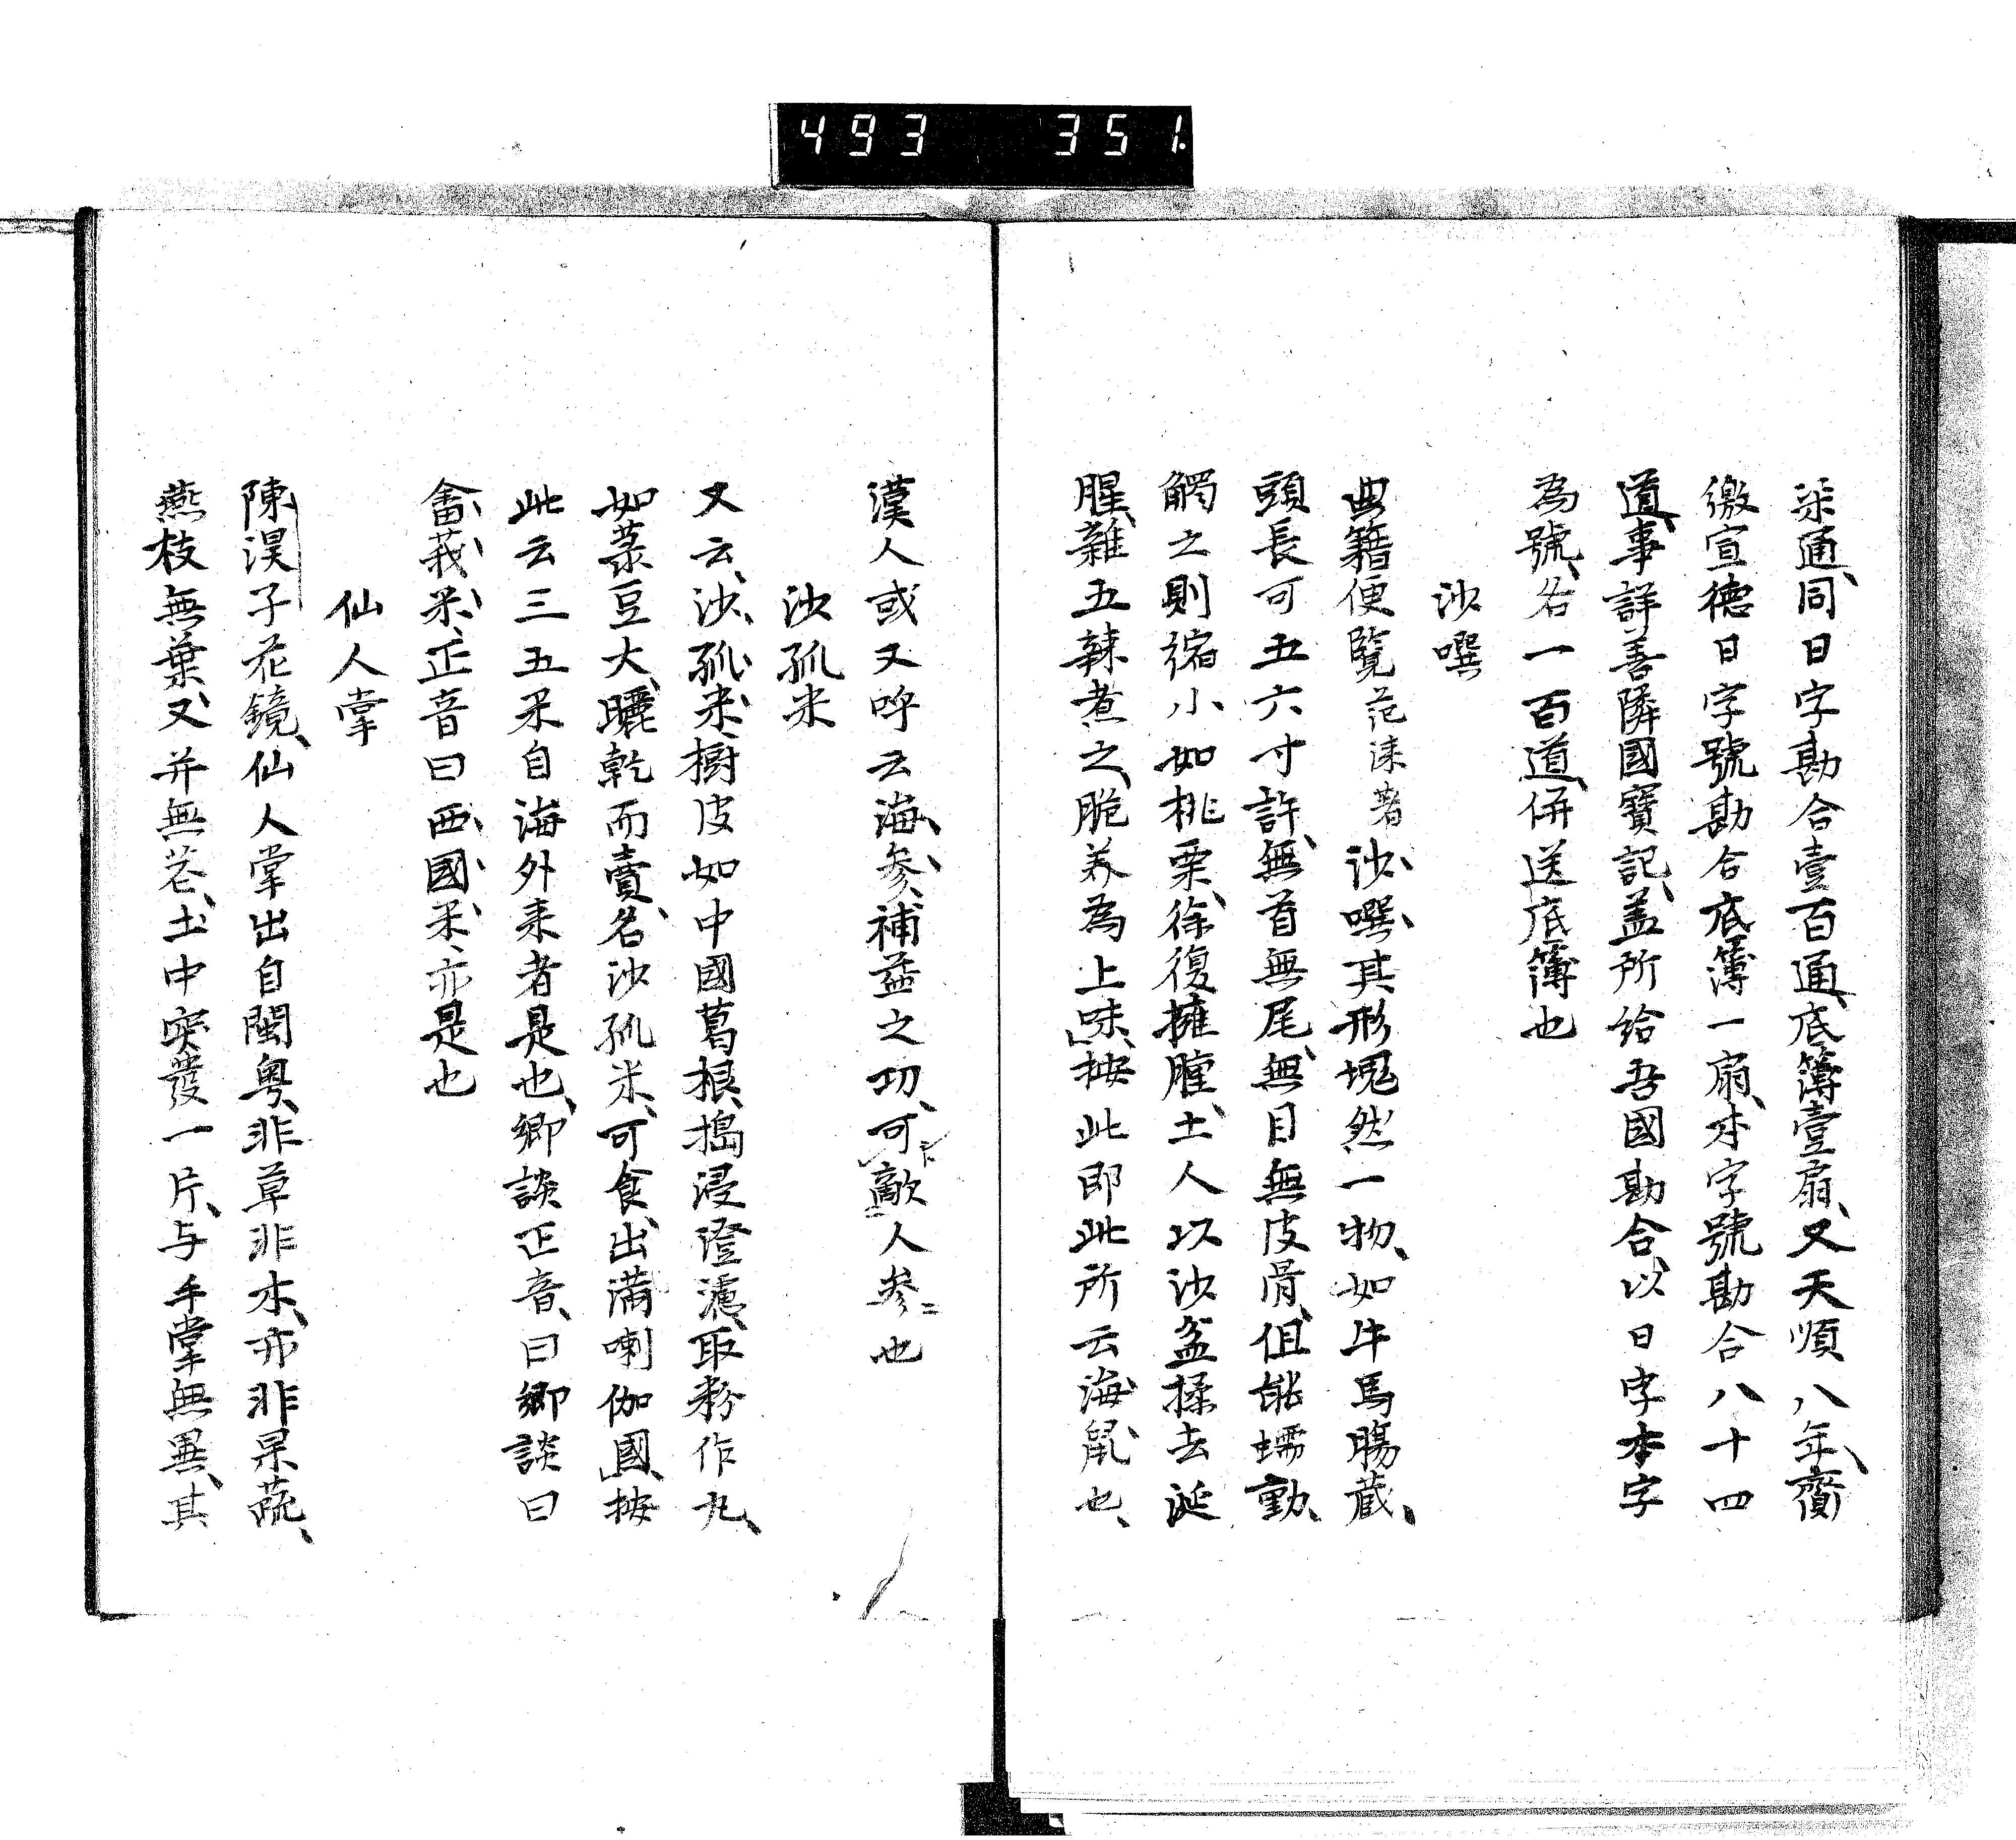 493 351.
来通、同日字勘合壹百通、底簿壹扇、又天順八年、齎
繳宣德日字號勘合底簿一扇、本字號勘合八十四
道、事詳善隣國寶記、盖所給吾國勘合、以日字本字
為號、各一百道、併送底簿也
沙噀
典籍便覧范淶著沙噀、其形塊然一物、如牛馬腸蔵、
頭長可五六寸許、無首無尾、無目無皮骨、但能蠕動、
觸之則縮小如桃栗、徐復擁腫、土人以沙盆揉去涎
腥、雜五辣煮之、脆美為上味、」按此即此所云海鼠也、
漢人或又呼云海参、補益之功、可敵人参也
沙孤米
又云、沙孤米、樹皮如中國葛根、搗浸澄濾、取粉作丸、
如菉豆大、曬乾而賣、名沙孤米、可食、出満喇伽國、」按
此云三五米自海外来者是也、郷談正音、曰郷談曰
畲莪米、正音曰西國米、亦是也
仙人掌
陳淏子花鏡、仙人掌出自閩粤、非草非木、亦非果蔬、
燕枝無葉、又并無花、土中突發一片、与手掌無異、其